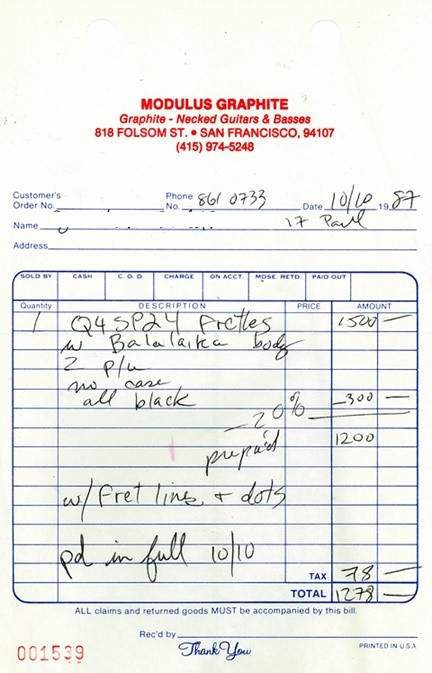 MODULUS GRAPHITE
Graphite - Necked Guitars & Basses
818 FOLSOM ST. • SAN FRANCISCO, 94107
(415) 974-5248
Customer's Order No. Phone No. 861 0733 Date 10/10 1987
Name 17 Paul
Address
SOLD BY CASH C. O. D. CHARGE ON ACCT. MDSE. RETD. PAID OUT
Quantity DESCRIPTION PRICE AMOUNT
1 Q4SP24 Fretles 1500 —
w Balalaika body
2 p/u
no case
all black -300 —
-20%
prepa'd 1200
w/ Fret lines + dots
pd in full 10/10
TAX 78 —
TOTAL 1278 —
ALL claims and returned goods MUST be accompanied by this bill.
Rec'd by
001539 Thank You PRINTED IN U.S.A